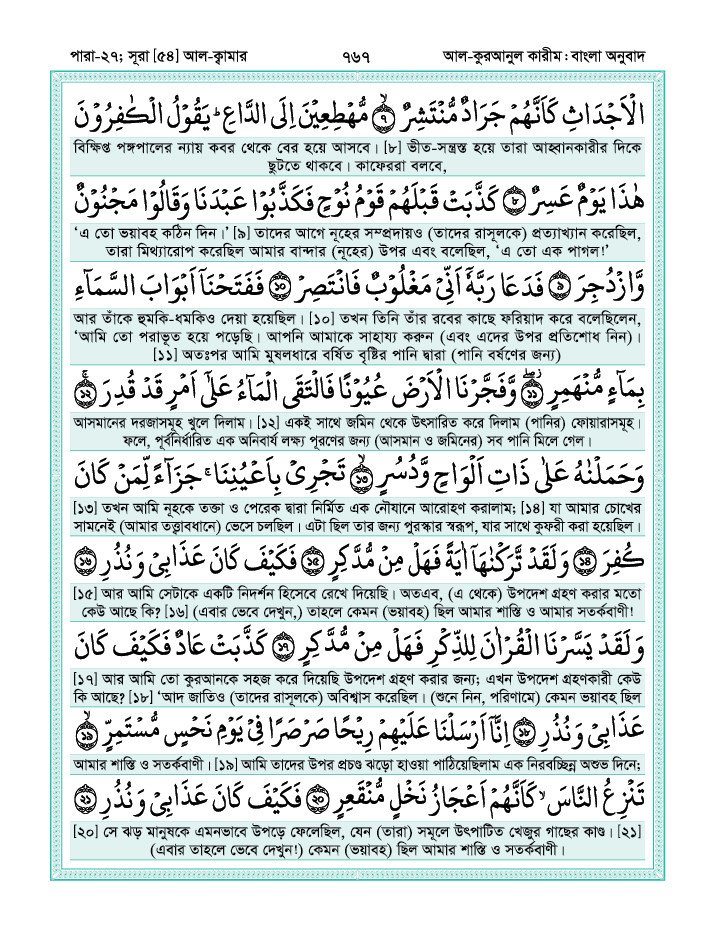 পারা-২৭; সূরা [৫৪] আল-ক্বামার ৭৬৭ আল-কুরআনুল কারীম : বাংলা অনুবাদ
الْاَجْدَاثِ كَاَنَّهُمْ جَرَادٌ مُّنْتَشِرٌ ۙ﴿۷﴾ مُّهْطِعِيْنَ اِلَى الدَّاعِ ؕ يَقُوْلُ الْكٰفِرُوْنَ
বিক্ষিপ্ত পঙ্গপালের ন্যায় কবর থেকে বের হয়ে আসবে। [৮] ভীত-সন্ত্রস্ত হয়ে তারা আহ্বানকারীর দিকে
ছুটতে থাকবে। কাফেররা বলবে,
هٰذَا يَوْمٌ عَسِرٌ ﴿۸﴾ كَذَّبَتْ قَبْلَهُمْ قَوْمُ نُوْحٍ فَكَذَّبُوْا عَبْدَنَا وَقَالُوْا مَجْنُوْنٌ
‘এ তো ভয়াবহ কঠিন দিন।’ [৯] তাদের আগে নূহের সম্প্রদায়ও (তাদের রাসূলকে) প্রত্যাখ্যান করেছিল,
তারা মিথ্যারোপ করেছিল আমার বান্দার (নূহের) উপর এবং বলেছিল, ‘এ তো এক পাগল!’
وَّازْدُجِرَ ﴿۹﴾ فَدَعَا رَبَّهٗۤ اَنِّيْ مَغْلُوْبٌ فَانْتَصِرْ ﴿۱۰﴾ فَفَتَحْنَاۤ اَبْوَابَ السَّمَآءِ
আর তাঁকে হুমকি-ধমকিও দেয়া হয়েছিল। [১০] তখন তিনি তাঁর রবের কাছে ফরিয়াদ করে বলেছিলেন,
‘আমি তো পরাভূত হয়ে পড়েছি। আপনি আমাকে সাহায্য করুন (এবং এদের উপর প্রতিশোধ নিন)।
[১১] অতঃপর আমি মুষলধারে বর্ষিত বৃষ্টির পানি দ্বারা (পানি বর্ষণের জন্য)
بِمَآءٍ مُّنْهَمِرٍ ﴿۱۱﴾ وَّفَجَّرْنَا الْاَرْضَ عُيُوْنًا فَالْتَقَى الْمَآءُ عَلٰۤى اَمْرٍ قَدْ قُدِرَ ﴿۱۲﴾
আসমানের দরজাসমূহ খুলে দিলাম। [১২] একই সাথে জমিন থেকে উৎসারিত করে দিলাম (পানির) ফোয়ারাসমূহ।
ফলে, পূর্বনির্ধারিত এক অনিবার্য লক্ষ্য পূরণের জন্য (আসমান ও জমিনের) সব পানি মিলে গেল।
وَحَمَلْنٰهُ عَلٰى ذَاتِ اَلْوَاحٍ وَّدُسُرٍ ﴿۱۳﴾ تَجْرِيْ بِاَعْيُنِنَا ۚ جَزَآءً لِّمَنْ كَانَ
[১৩] তখন আমি নূহকে তক্তা ও পেরেক দ্বারা নির্মিত এক নৌযানে আরোহণ করালাম; [১৪] যা আমার চোখের
সামনেই (আমার তত্ত্বাবধানে) ভেসে চলছিল। এটা ছিল তার জন্য পুরস্কার স্বরূপ, যার সাথে কুফরী করা হয়েছিল।
كُفِرَ ﴿۱۴﴾ وَلَقَدْ تَّرَكْنٰهَاۤ اٰيَةً فَهَلْ مِنْ مُّدَّكِرٍ ﴿۱۵﴾ فَكَيْفَ كَانَ عَذَابِيْ وَنُذُرِ ﴿۱۶﴾
[১৫] আর আমি সেটাকে একটি নিদর্শন হিসেবে রেখে দিয়েছি। অতএব, (এ থেকে) উপদেশ গ্রহণ করার মতো
কেউ আছে কি? [১৬] (এবার ভেবে দেখুন,) তাহলে কেমন (ভয়াবহ) ছিল আমার শাস্তি ও আমার সতর্কবাণী!
وَلَقَدْ يَسَّرْنَا الْقُرْاٰنَ لِلذِّكْرِ فَهَلْ مِنْ مُّدَّكِرٍ ﴿۱۷﴾ كَذَّبَتْ عَادٌ فَكَيْفَ كَانَ
[১৭] আর আমি তো কুরআনকে সহজ করে দিয়েছি উপদেশ গ্রহণ করার জন্য; এখন উপদেশ গ্রহণকারী কেউ
কি আছে? [১৮] ‘আদ জাতিও (তাদের রাসূলকে) অবিশ্বাস করেছিল। (শুনে নিন, পরিণামে) কেমন ভয়াবহ ছিল
عَذَابِيْ وَنُذُرِ ﴿۱۸﴾ اِنَّاۤ اَرْسَلْنَا عَلَيْهِمْ رِيْحًا صَرْصَرًا فِيْ يَوْمِ نَحْسٍ مُّسْتَمِرٍّ ۙ﴿۱۹﴾
আমার শাস্তি ও সতর্কবাণী। [১৯] আমি তাদের উপর প্রচণ্ড ঝড়ো হাওয়া পাঠিয়েছিলাম এক নিরবচ্ছিন্ন অশুভ দিনে;
تَنْزِعُ النَّاسَ ۙ كَاَنَّهُمْ اَعْجَازُ نَخْلٍ مُّنْقَعِرٍ ﴿۲۰﴾ فَكَيْفَ كَانَ عَذَابِيْ وَنُذُرِ ﴿۲۱﴾
[২০] সে ঝড় মানুষকে এমনভাবে উপড়ে ফেলেছিল, যেন (তারা) সমূলে উৎপাটিত খেজুর গাছের কাণ্ড। [২১]
(এবার তাহলে ভেবে দেখুন!) কেমন (ভয়াবহ) ছিল আমার শাস্তি ও সতর্কবাণী।